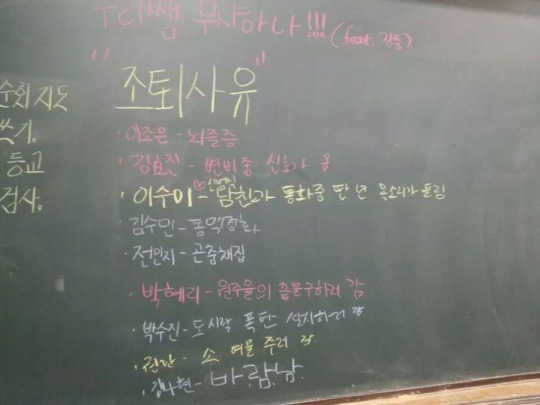 무사하나!!!
"조퇴사유"
순회지도
쓰기.
등교
검사.
· 이조은 - 뇌졸증
· 김효진 - 변비중 신호가 옴
· 이수미 - 남친과 통화중 딴 년 목소리가 들림
· 김수민 - 동맥경화
· 전민지 - 곤충채집
· 박혜리 - 원주율의 끝을 구하러 감
· 박수진 - 도시락 폭탄 설치하러 감
· 소 여물 주러 감
· 김나현 - 바람남